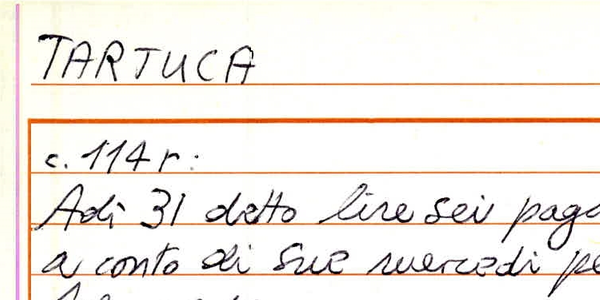 TARTUCA
c. 114 r:
Adì 31 detto lire sei
a conto di sue mercedi